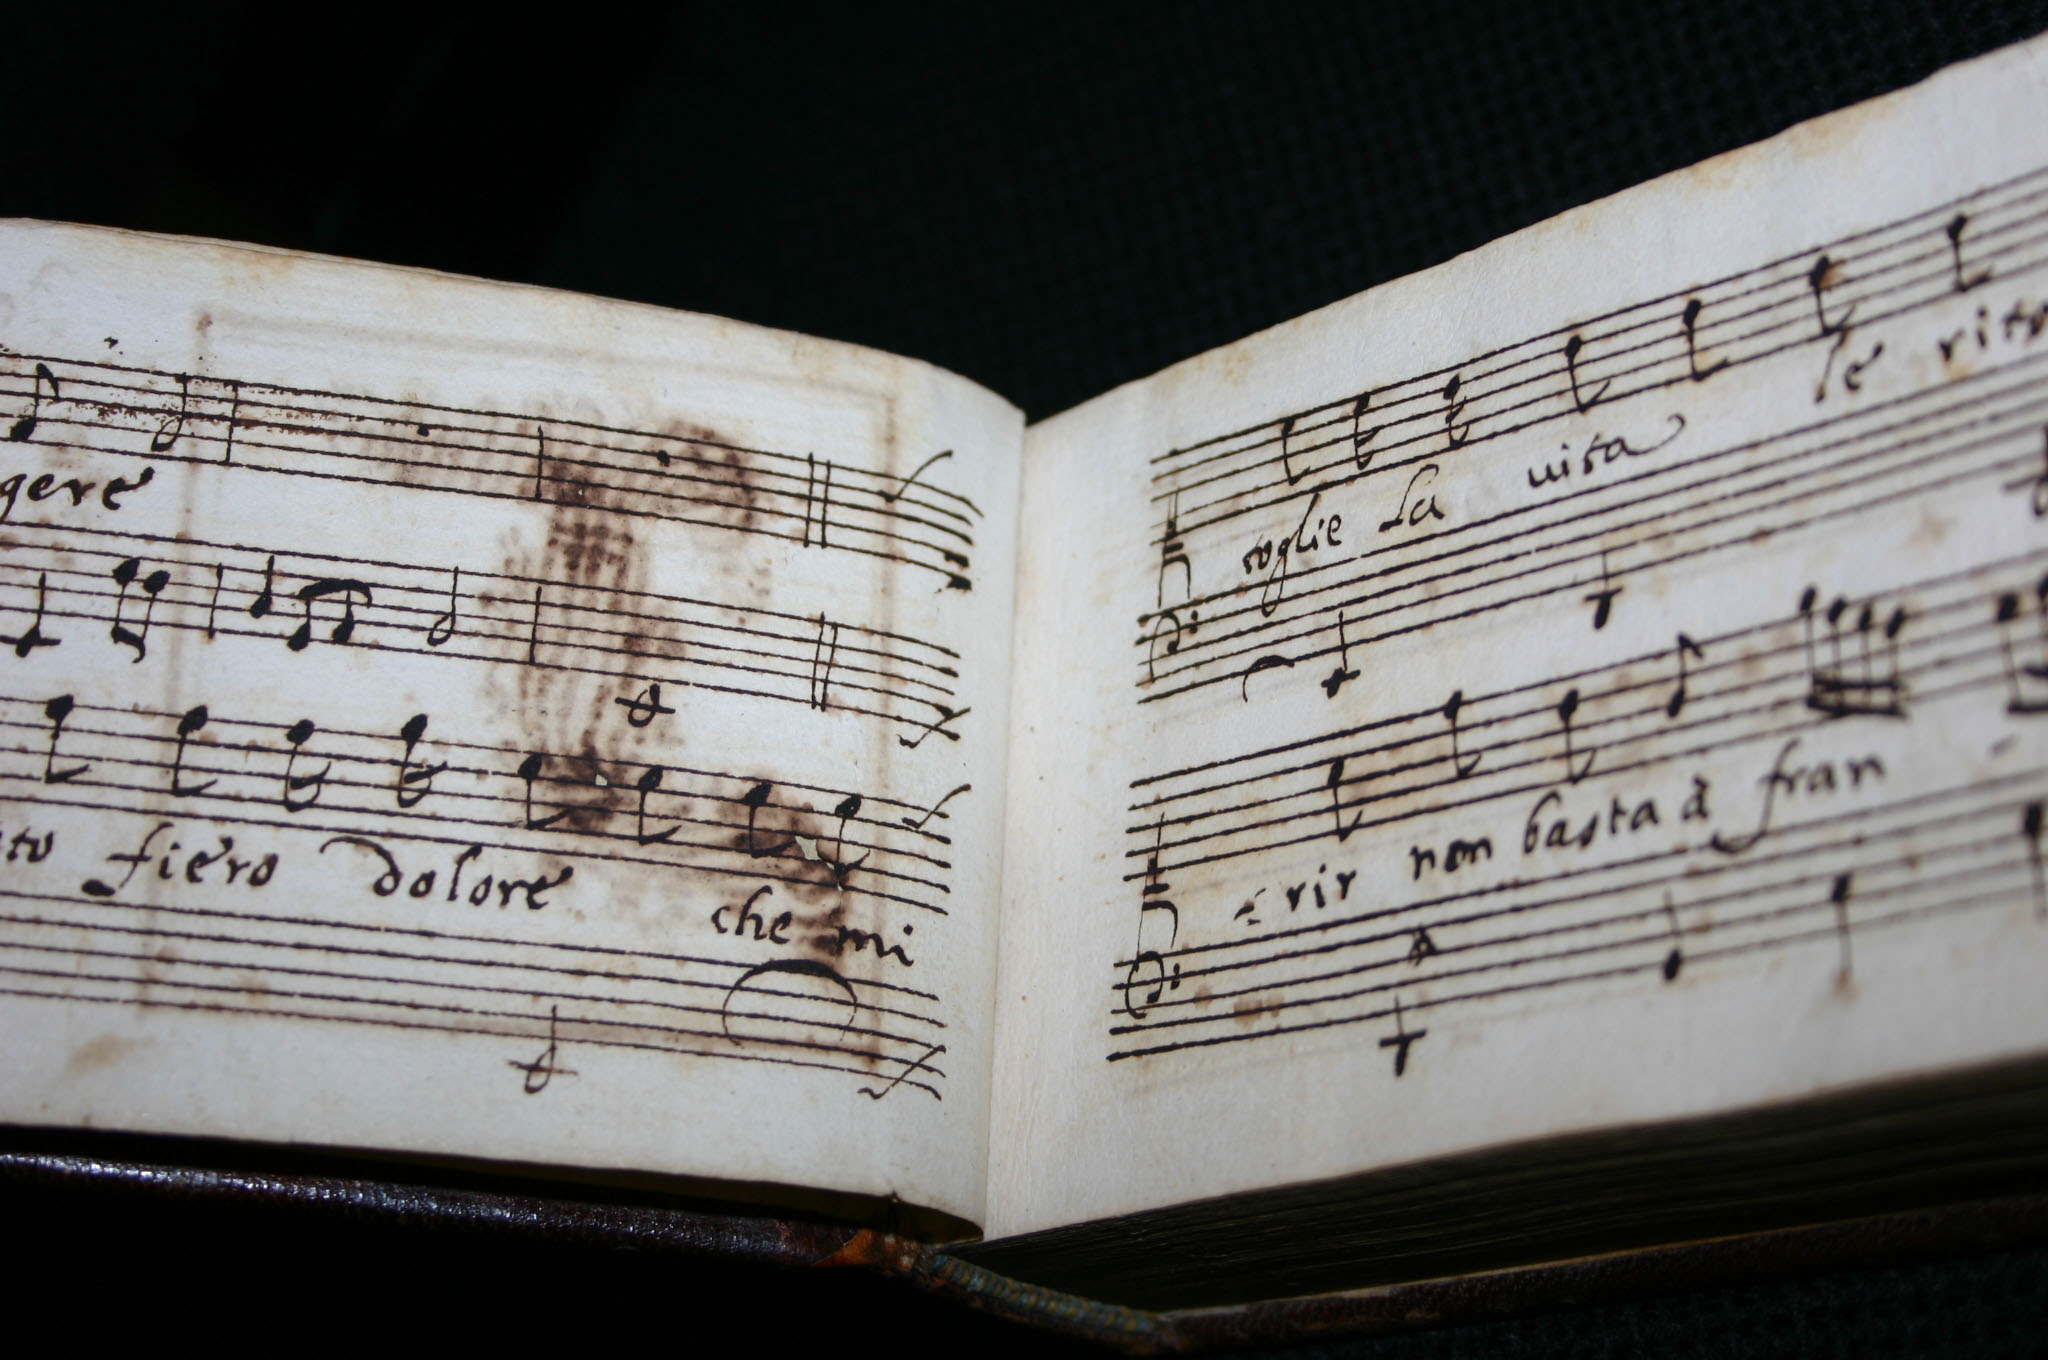 gere
to fiero dolore che mi
toglie la uita se
rir non basta à fran